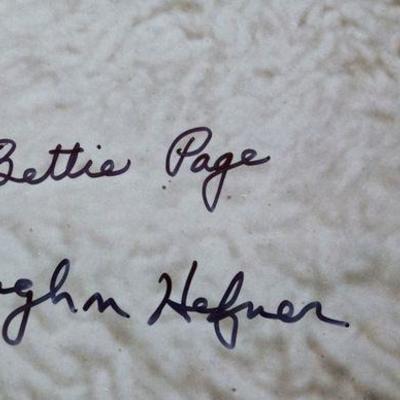 Bettie Page
ghn Hefner